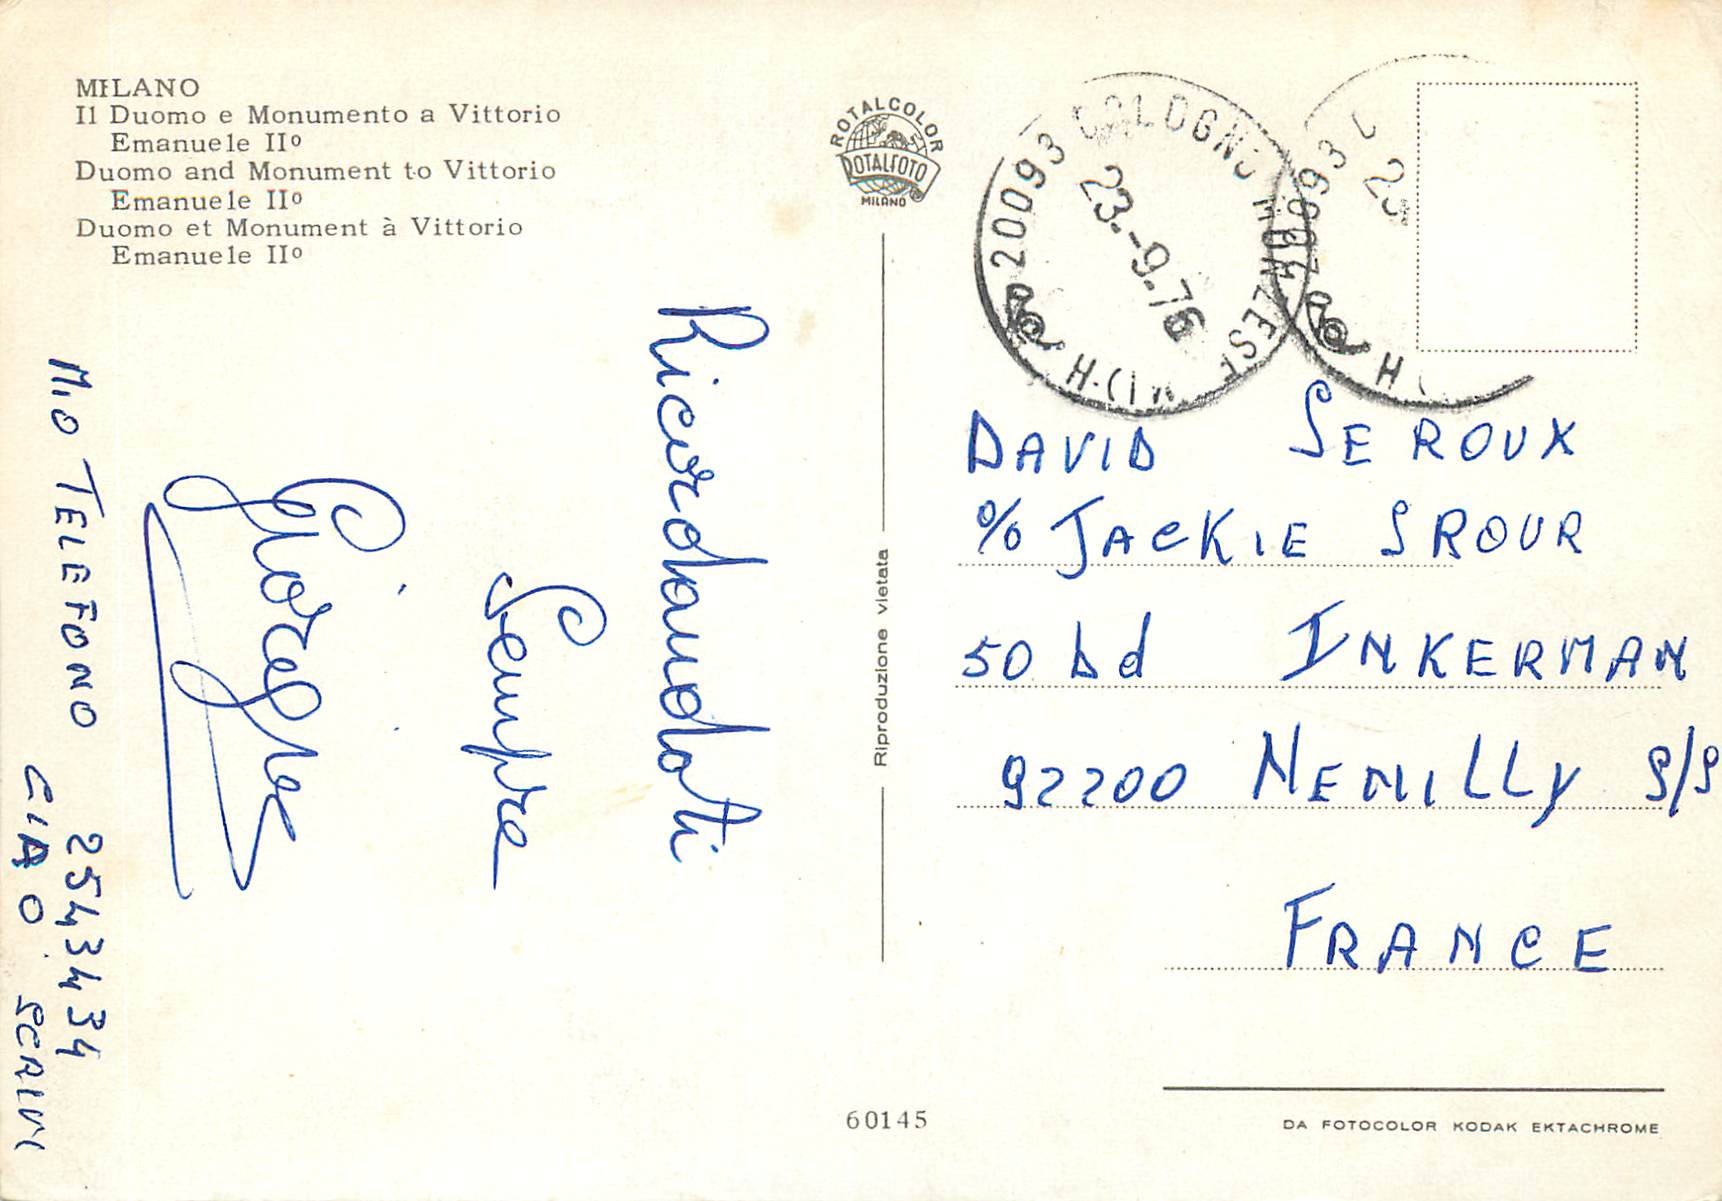 MILANO
Il Duomo e Monumento a Vittorio
Emanuele IIº
Duomo and Monument to Vittorio
Emanuele IIº
Duomo et Monument à Vittorio
Emanuele IIº
ROTALCOLOR
ROTALFOTO
MILANO
20093 COLOGNO MONZESE
23.-9.76
20093
Ricordandoti
Sempre
MIO TELEFONO 2543434
CIAO SCRIVI
Riproduzione vietata
DAVID SEROUX
% JACKIE SROUR
50 bd INKERMAN
92200 NEMILLY S/S
FRANCE
60145
DA FOTOCOLOR KODAK EKTACHROME